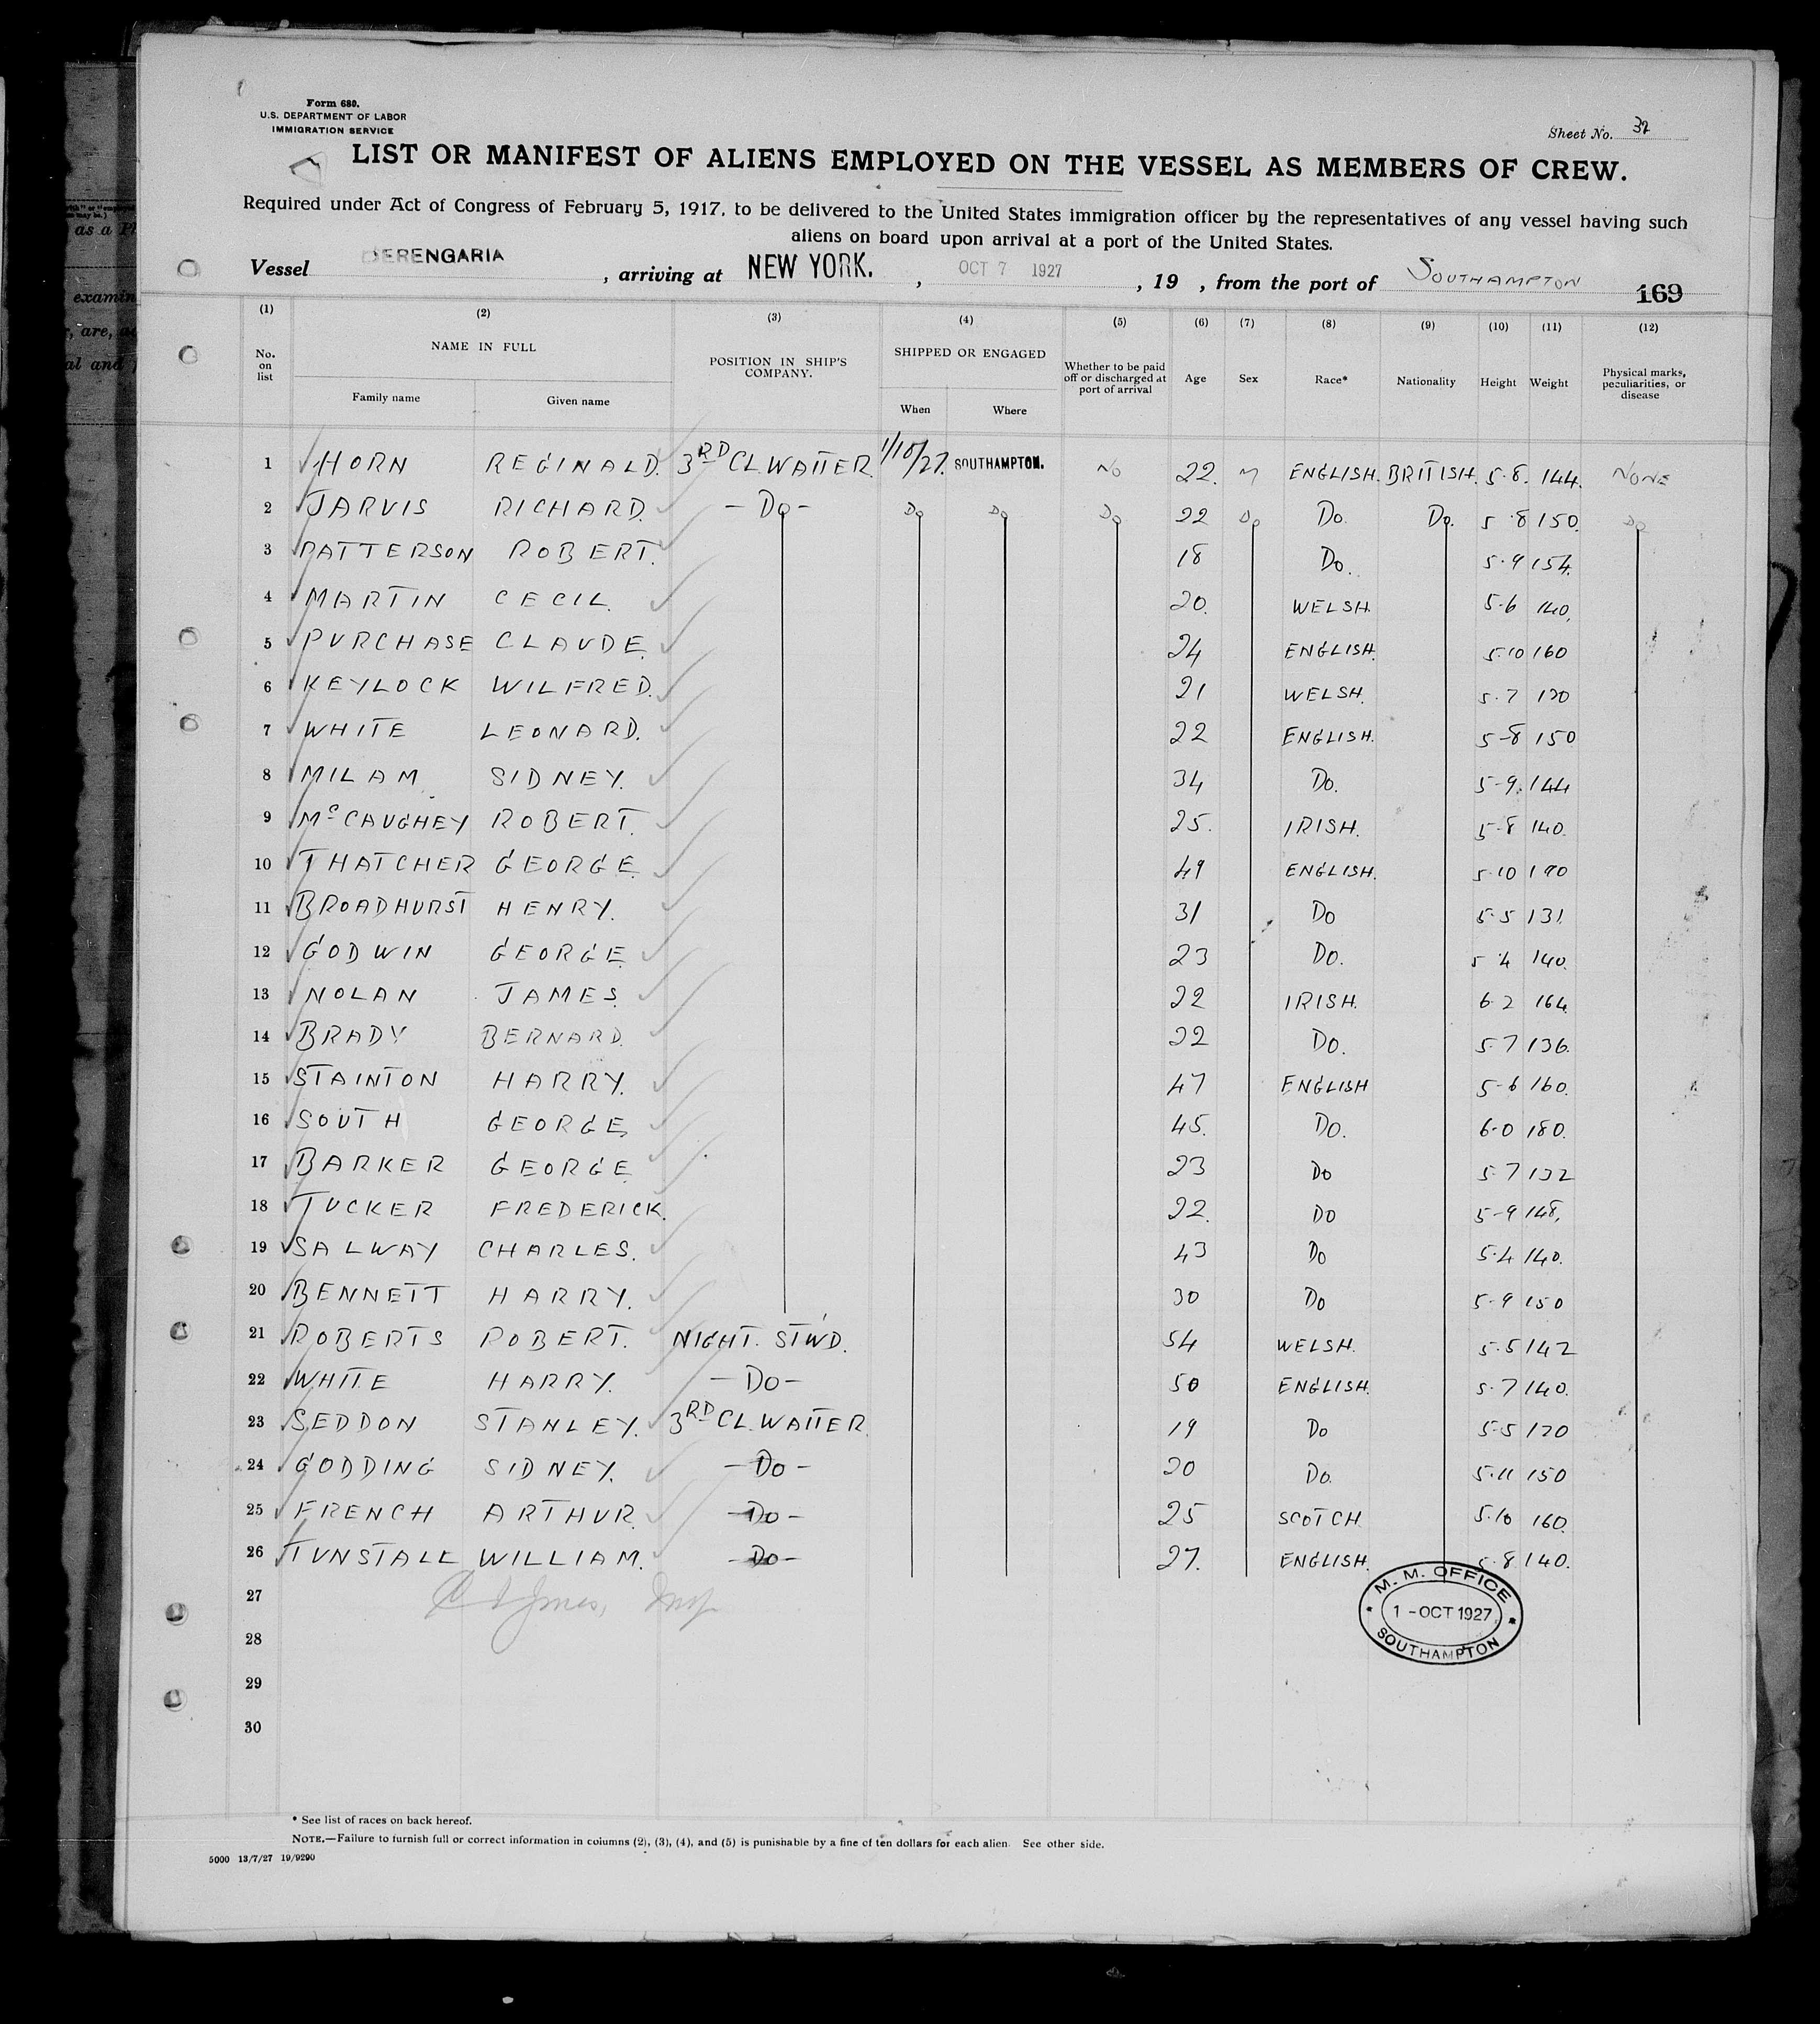 Form 680.
U.S. DEPARTMENT OF LABOR
IMMIGRATION SERVICE
Sheet No. 32
LIST OR MANIFEST OF ALIENS EMPLOYED ON THE VESSEL AS MEMBERS OF CREW.
Required under Act of Congress of February 5, 1917, to be delivered to the United States immigration officer by the representatives of any vessel having such
aliens on board upon arrival at a port of the United States.
Vessel BERENGARIA, arriving at NEW YORK., OCT 7 1927, 19 , from the port of SOUTHAMPTON 169
(1) (2) (3) (4) (5) (6) (7) (8) (9) (10) (11) (12)
No. on list NAME IN FULL Family name Given name POSITION IN SHIP'S COMPANY. SHIPPED OR ENGAGED When Where Whether to be paid off or discharged at port of arrival Age Sex Race* Nationality Height Weight Physical marks, peculiarities, or disease
1 HORN REGINALD. 3RD CL WAITER 1/10/27. SOUTHAMPTON. NO 22. M ENGLISH. BRITISH. 5.8. 144. NONE
2 JARVIS RICHARD. - DO - DO DO DO 22 DO DO. DO. 5.8 150. DO
3 PATTERSON ROBERT. 18 DO. 5.9 154.
4 MARTIN CECIL. 20. WELSH. 5.6 140,
5 PURCHASE CLAUDE. 24 ENGLISH. 5.10 160
6 KEYLOCK WILFRED. 21 WELSH. 5.7
7 WHITE LEONARD. 22 ENGLISH. 5-8 150
8 MILAM SIDNEY. 34 DO. 5-9. 144
9 McCAUGHEY ROBERT. 25. IRISH. 5-8 140.
10 THATCHER GEORGE. 49 ENGLISH. 5.10 190
11 BROADHURST HENRY. 31 DO 5.5 131.
12 GODWIN GEORGE. 23 DO. 5.4 140.
13 NOLAN JAMES. 22 IRISH. 6.2 164.
14 BRADY BERNARD. 22 DO. 5.7 136.
15 STAINTON HARRY. 47 ENGLISH 5-6 160.
16 SOUTH GEORGE. 45. DO. 6.0 180.
17 BARKER GEORGE 23 DO 5.7 132
18 TUCKER FREDERICK. 22. DO 5-9 148.
19 SALWAY CHARLES. 43 DO 5.4 140.
20 BENNETT HARRY. 30 DO 5.9 150
21 ROBERTS ROBERT. NIGHT. STWD. 54 WELSH. 5.5 142
22 WHITE HARRY. - DO - 50 ENGLISH. 5.7 140.
23 SEDDON STANLEY. 3RD CL. WAITER. 19 DO 5.5 120
24 GODDING SIDNEY. - DO - 20 DO. 5.11 150
25 FRENCH ARTHUR. - DO - 25 SCOTCH 5.10 160.
26 TUNSTALL WILLIAM. - DO - 27. ENGLISH. 5.8 140.
27
28
29
30
M. M. OFFICE
1 - OCT 1927
SOUTHAMPTON
* See list of races on back hereof.
NOTE.—Failure to furnish full or correct information in columns (2), (3), (4), and (5) is punishable by a fine of ten dollars for each alien. See other side.
5000 13/7/27 19/9290